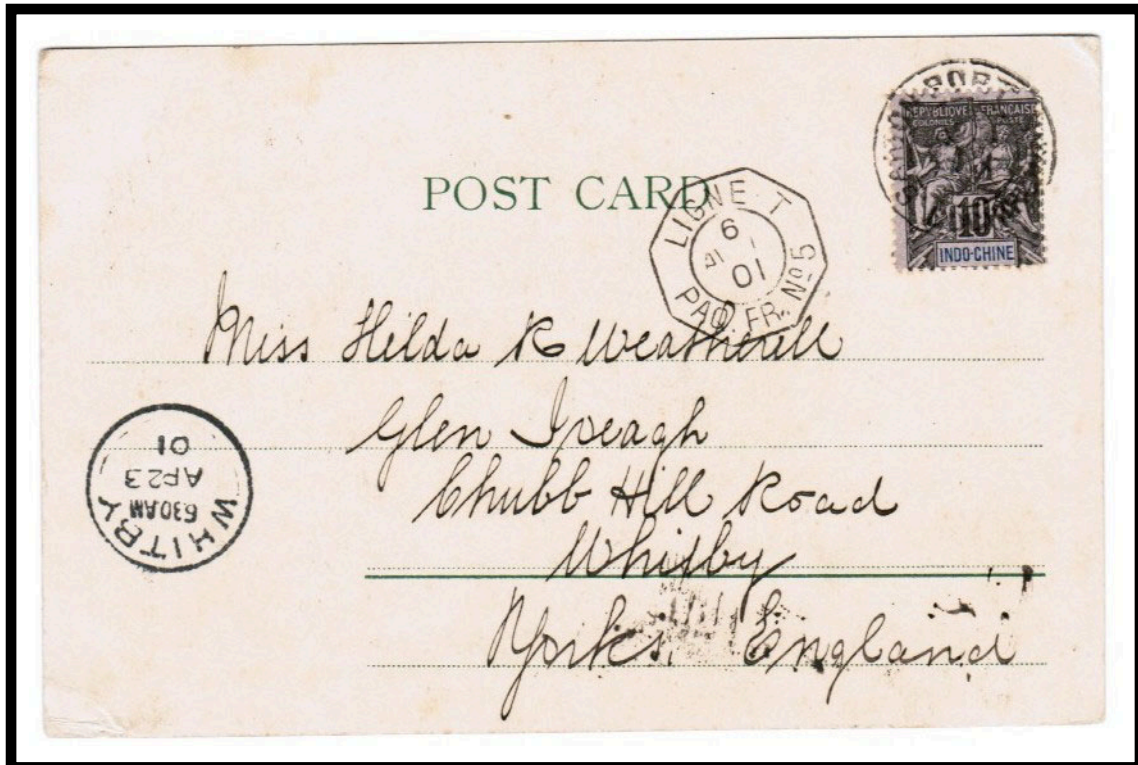 POST CARD
REPUBLIQUE FRANCAISE
COLONIES POSTE
10
INDO-CHINE
PORT
LIGNE T
6
01
PAQ. FR. Nº5
Miss Hilda R Weatherill
Glen Iveagh
Chubb Hill Road
Whitby
Yorks, England
WHITBY
630AM
AP23
01